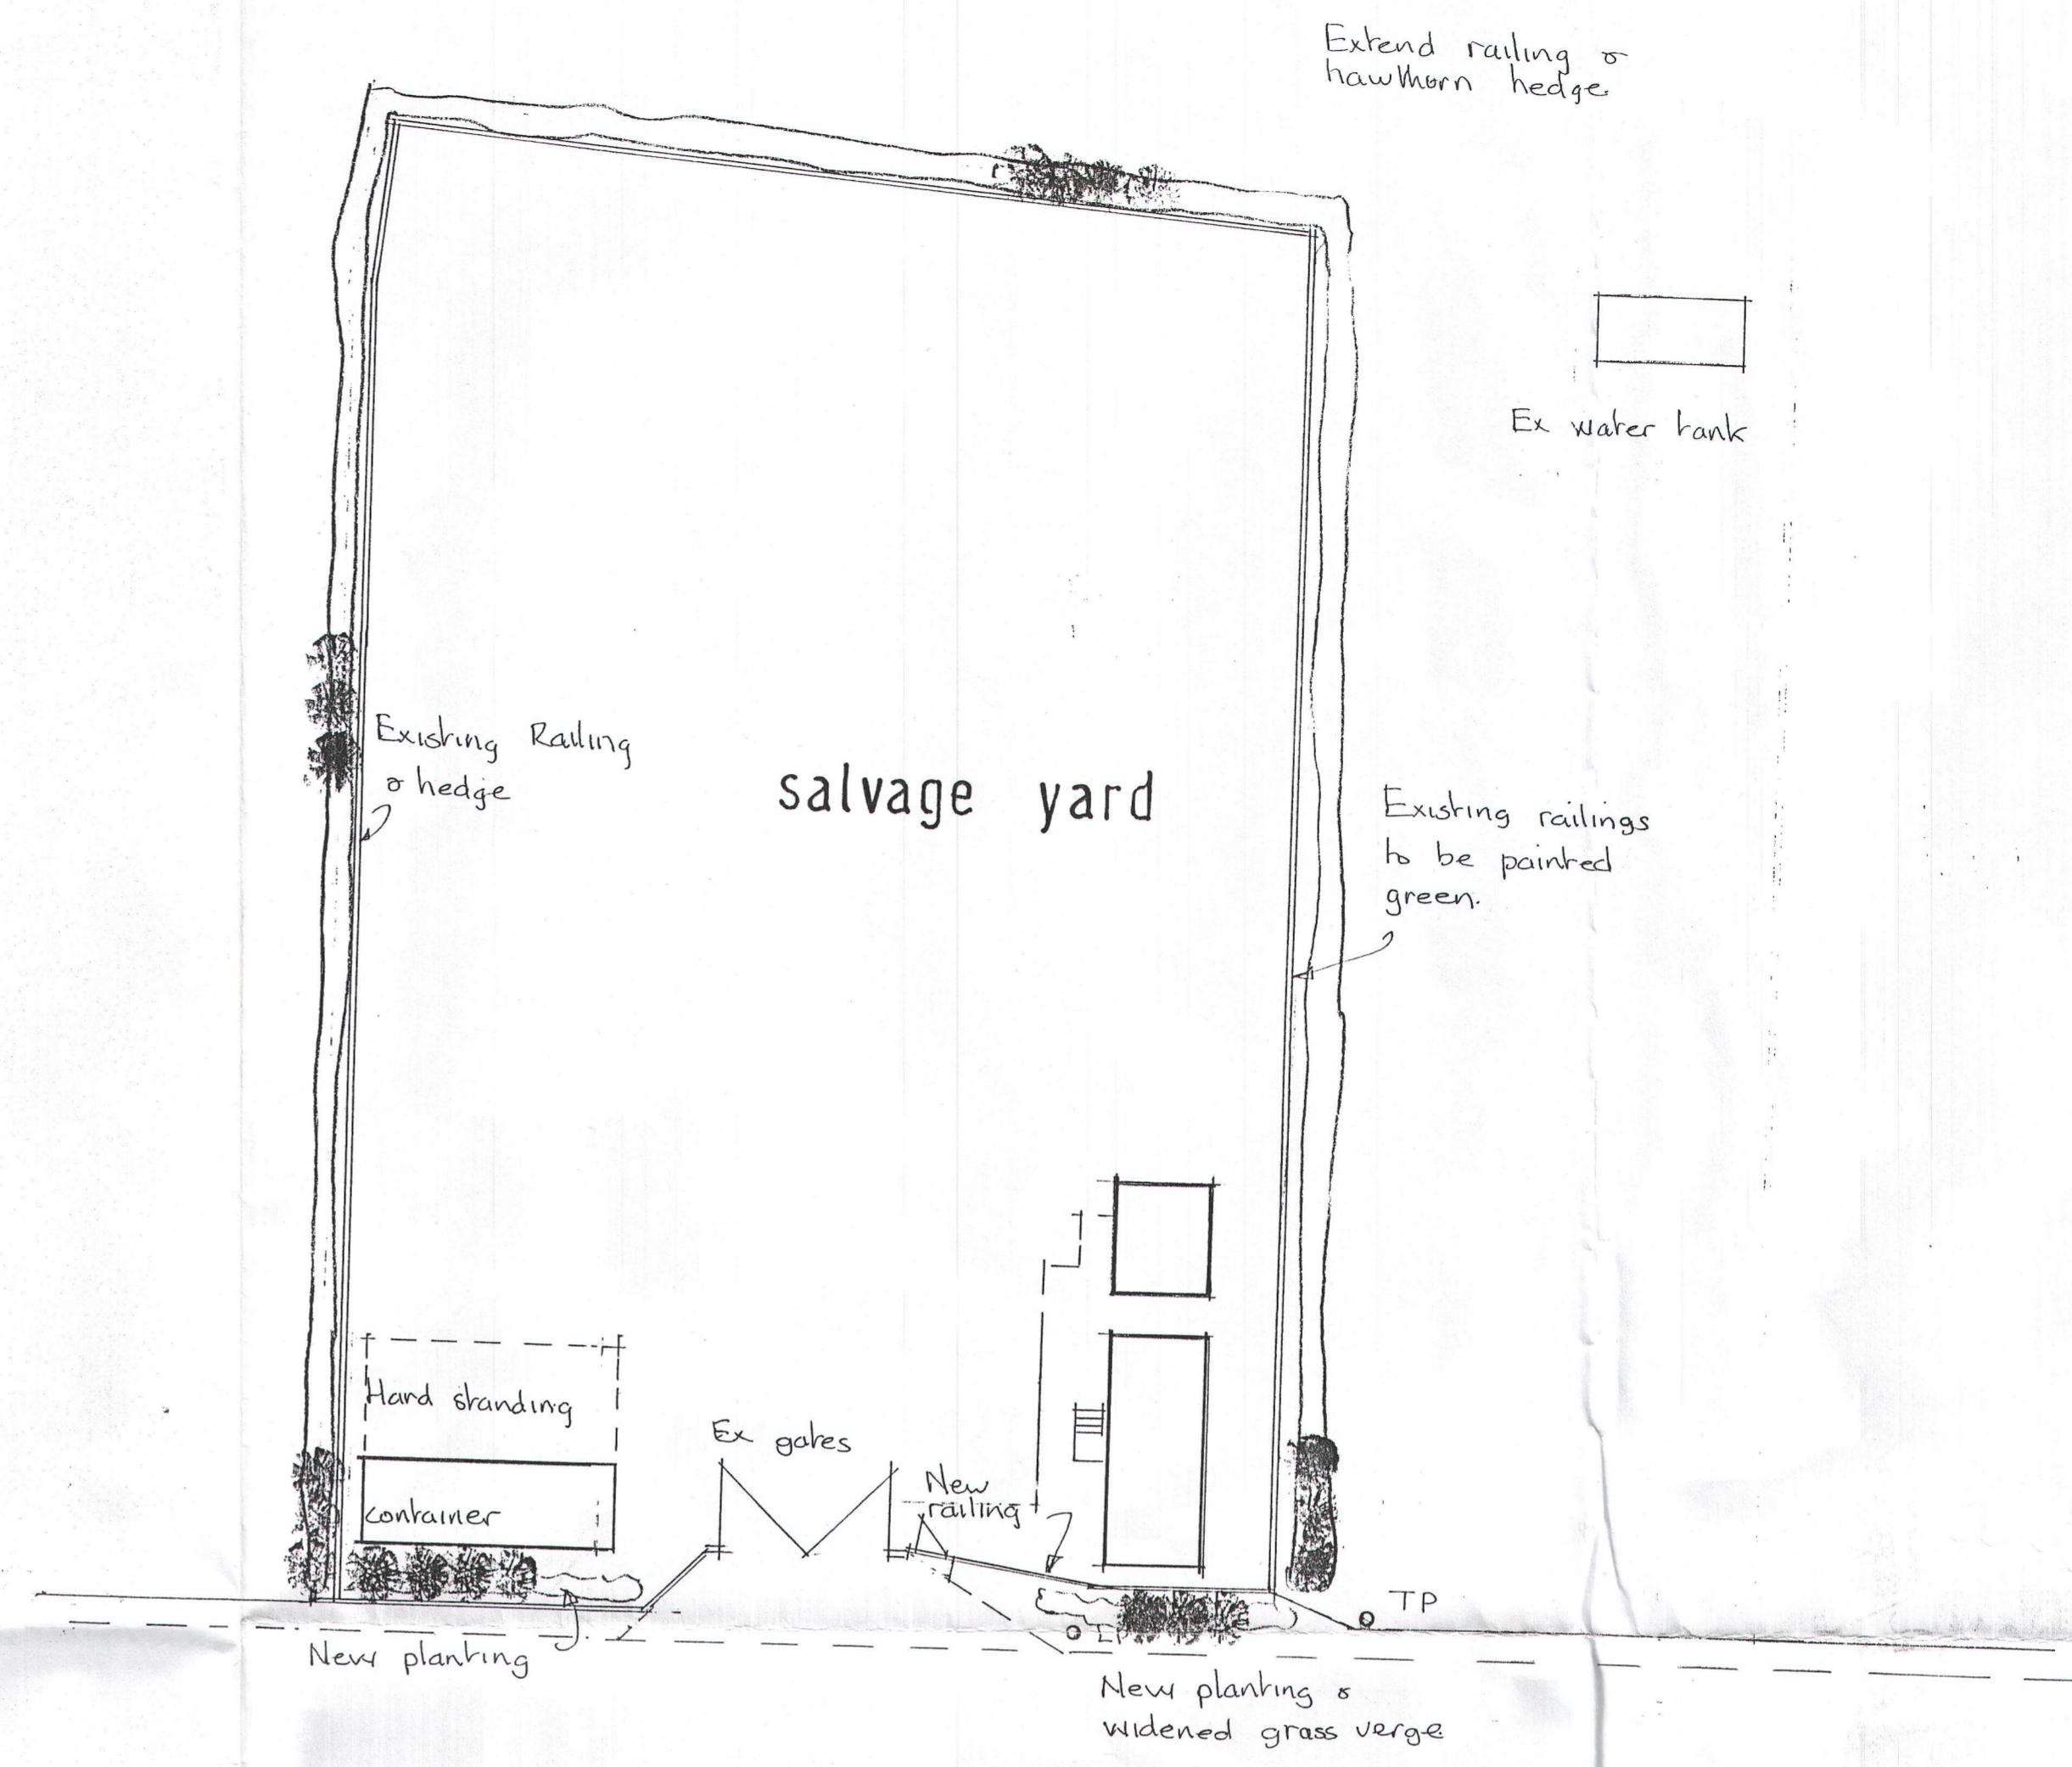 Extend railing &
hawthorn hedge
Ex water tank
Existing Railing
& hedge
salvage yard
Existing railings
to be painted
green.
Hard standing
Ex gates
New
railing
container
TP
New planting
New planting &
widened grass verge